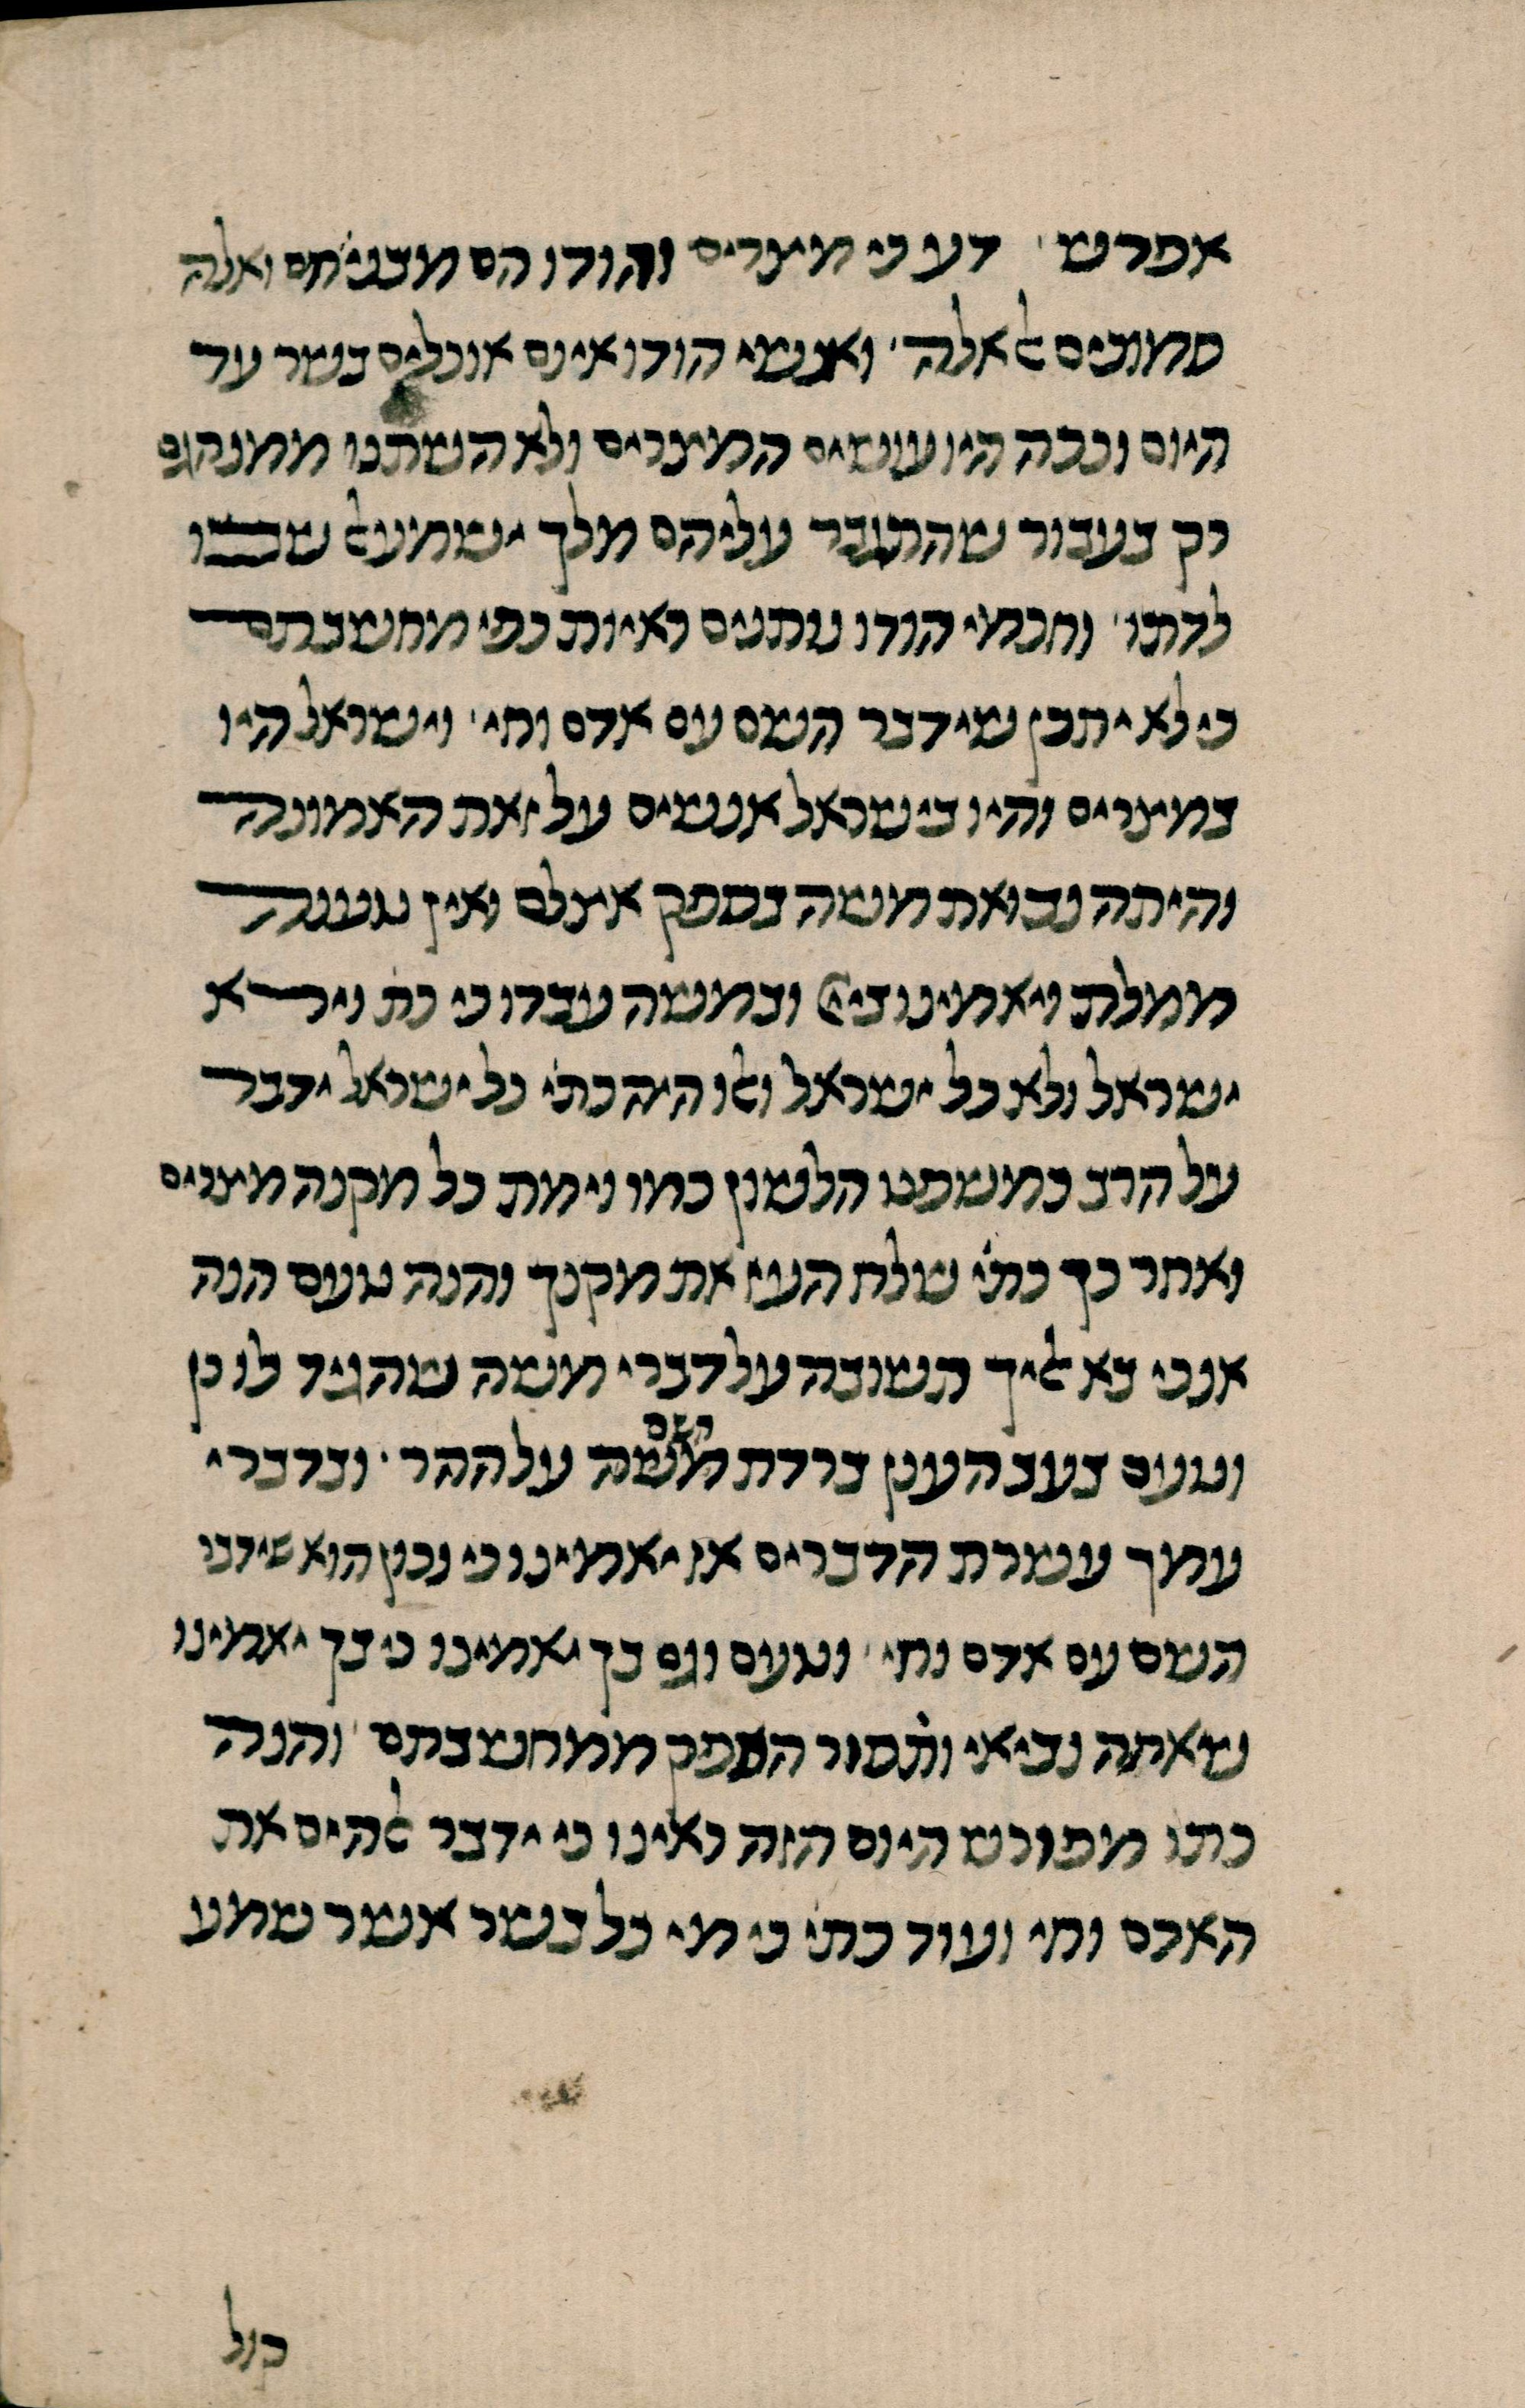 אפרש׳ דע כי מצרים והודו הם מבני חם ואלה
סמוכים לאלה׳ ואנשי הודו אינם אוכלים בשר עד
היום וככה היו עושים המצרים ולא השתנו ממנהגם
רק בעבור שהתגבר עליהם מלך ישמעאל ששבו
לדתו׳ וחכמי הודו נותנים ראיות כפי מחשבתם
כי לא יתכן שידבר השם עם אדם וחי׳ וישראל היו
במצרים והיו בישראל אנשים על זאת האמונה
והיתה נבואת משה בספק אצלם ואין טענה
ממלת ויאמינו ביי ובמשה עבדו כי כת׳ וירא
ישראל ולא כל ישראל ולו היה כתו׳ כל ישראל ידבר
על הרב כמשפט הלשון כמו וימת כל מקנה מצרים
ואחר כך כתו׳ שלח העז את מקנך והנה טעם הנה
אנכי בא אליך תשובה על דברי משה שהגיד לו כן
וטעם בעב הענן ברדת משה השם על ההר׳ ובדברי
עמך עשרת הדברים אז יאמינו כי נכון הוא שידבר
השם עם אדם וחי׳ וטעם וגם בך יאמינו כי בך יאמינו
שאתה נביאי ותסור הספק ממחשבתם׳ והנה
כתו׳ מפורש היום הזה ראינו כי ידבר אלהים את
האדם וחי ועוד כתו׳ כי מי כל בשר אשר שמע
קול